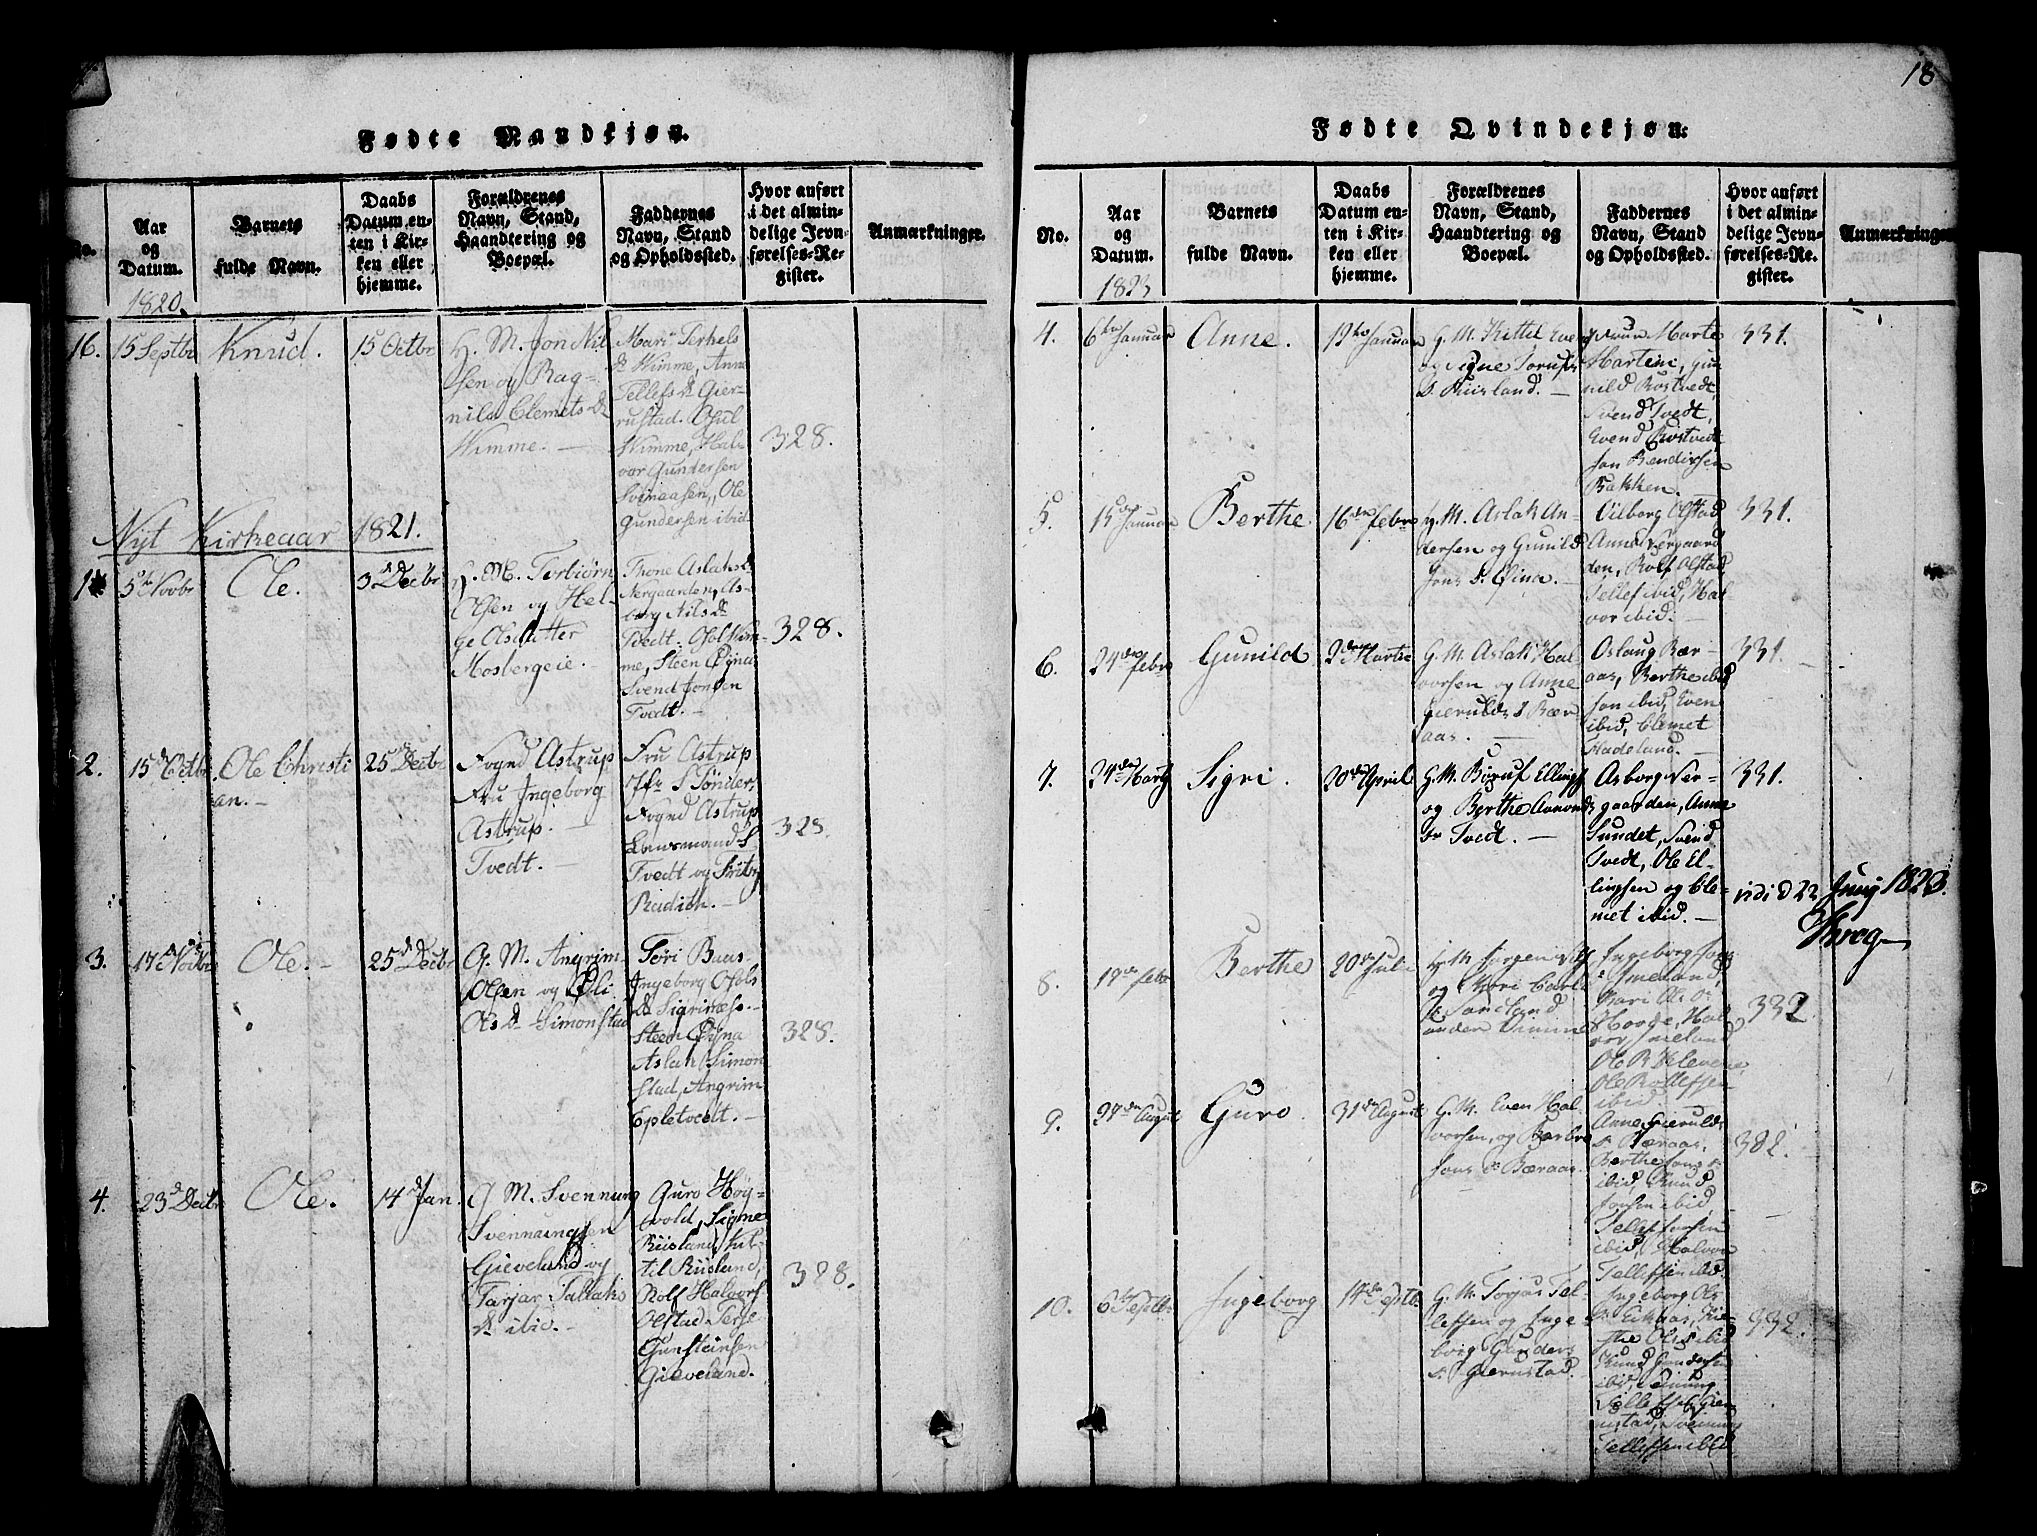 18
Fødte Mandkjøn.
No.
Aar
og
Datum.
Barnets
fulde Navn.
Daabs
Datum en-
ten i Kir-
ken eller
hjemme.
Forældrenes
Navn, Stand,
Haandtering og
Boepæl.
Faddernes
Navn, Stand
og Opholdssted.
Hvor anført
i det almin-
delige Jevn-
førelses-Re-
gister.
Anmærkninger.
1820.
16.
15 Septbr
Knud.
15 Octbr
G. M. Jon Nil
sen og Rag-
nild Clemets D
Wimme. —
Mari Terkels
D Wimme, Anne
Tellefs D Gier-
rustad. Osul
Wimme, Hal-
vor Gundersen
Svinaasen, Ole
Gundersen ibid
328.
Nyt Kirkeaar 1821.
1
5te Novbr
Ole.
3d Decbr
G. M. Torbiørn
Olsen og Hel-
ge Olsdatter
Mosbergeie. —
Thone Aslaks D
Nergaarden, As-
borg Nils D
Tvedt. Osol Wim-
me, Steen Øyna
Svend Jonsen
Tvedt. —
328.
2.
15d Octbr.
Ole Christi
an. —
25d Decbr
Fognd Astrup
Fru Ingeborg
Astrup. —
Tvedt. —
Fru Astrup
Jfr S Tønder,
Fognd Astrup
Lensmand S
Tvedt og
Radich. —
328.
3.
17d Novbr
Ole. —
25d Decbr
G. M. Angrim
Olsen og Eli
Ols D Simonstad
Tøri Buas-
Ingeborg Osols
D Sigrinæs.
Steen Øyna
Aslak Simon
stad, Angrim
Epletvedt. —
328.
4.
23d Decbr
Ole.
14d Jan.
G. M. Svennung
Svennungsen
Gieveland og
Tarjær Tallaks
D ibid. —
Guro Høg-
vold, Signe
Riisland, Kit-
til Riisland,
Rolf Halvors
Olstad Terje
Gunsteinsen
Gieveland.
328.
Fødte Qvindekjøn:
No.
Aar
og
Datum.
Barnets
fulde Navn.
Daabs
Datum en-
ten i Kir-
ken eller
hjemme.
Forældrenes
Navn, Stand,
Haandtering og
Boepæl.
Faddernes
Navn, Stand
og Opholdssted.
Hvor anført
i det almin-
delige Jevn-
førelses-Re-
gister.
Anmærkninger
1823
4.
6te Januar
Anne.
19de Januar
G. M. Kittel Evens
og Signe Torufs
D. Riisland. —
Marte
Martini, Gu-
nild Rostvedt,
Svend Tvedt,
Evend Rostvedt
Jon Bendixsen
Bakken.
331.
5.
15de Januar
Berthe
16de Febr
G. M. Aslak An-
dersen og Gunild
Jons D. Øina. —
Vilborg Olstad
Anne Nergaard
den, Rolf Olstad
Tellef ibid, Hal
vor ibid. —
331.
6.
24de Febr
Gunild
2den Martii
G. M. Aslak Hal-
vorsen og Anne
Gieruldsd Bær
aas. —
Aslaug Bær-
aas, Berthe ibid
Jon ibid, Even
ibid, Clemet
Hadeland. —
331.
7.
24de Marts
Sigri.
20de April
G. M. Boruf Ellings
og Berthe Aanonds
D. Tvedt. —
Asborg Ner-
gaarden, Anne
Sundet, Svend
Tvedt, Ole El-
lingsen og Cle-
met ibid. —
331.
vidi d 22 Junij 1823.
8.
19de Febr
Berthe
20de Julii
G. M. Jørgen Nils
og Mari Carls
D. Sandland
under Vimme
Ingeborg Jons
D Smeland,
Mari Ols D
Houge, Hal
vor Smeland
Ole R Kleveni
Ole Rollefsen
ibid. —
332
9.
27de August
Guro.
31de August
G. M. Even Hal-
vorsen, og Barbro
Jons D. Bæraas.
Anne Gierulds
D. Bæraas,
Berthe Jons D.
ibid, Knud
Jonsen ibid,
Tellef Jonsen
ibid, Halvor
Tellefsen ibid.
382.
10.
6te Septbr
Ingeborg
14de Septb.
G. M. Torjus Tel-
lefsen og Inge-
borg Gunders
D. Gierustad.
Ingeborg Ols
D. Eikaas, Kir-
stie Olsd ibid
Knud Gundersen
ibid, Svenning
Tellefsen Gier
ustad, Svenning
Tellefsen ibid
332.